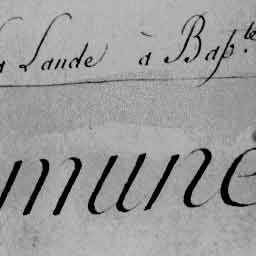 la Lande à Bapte
mune